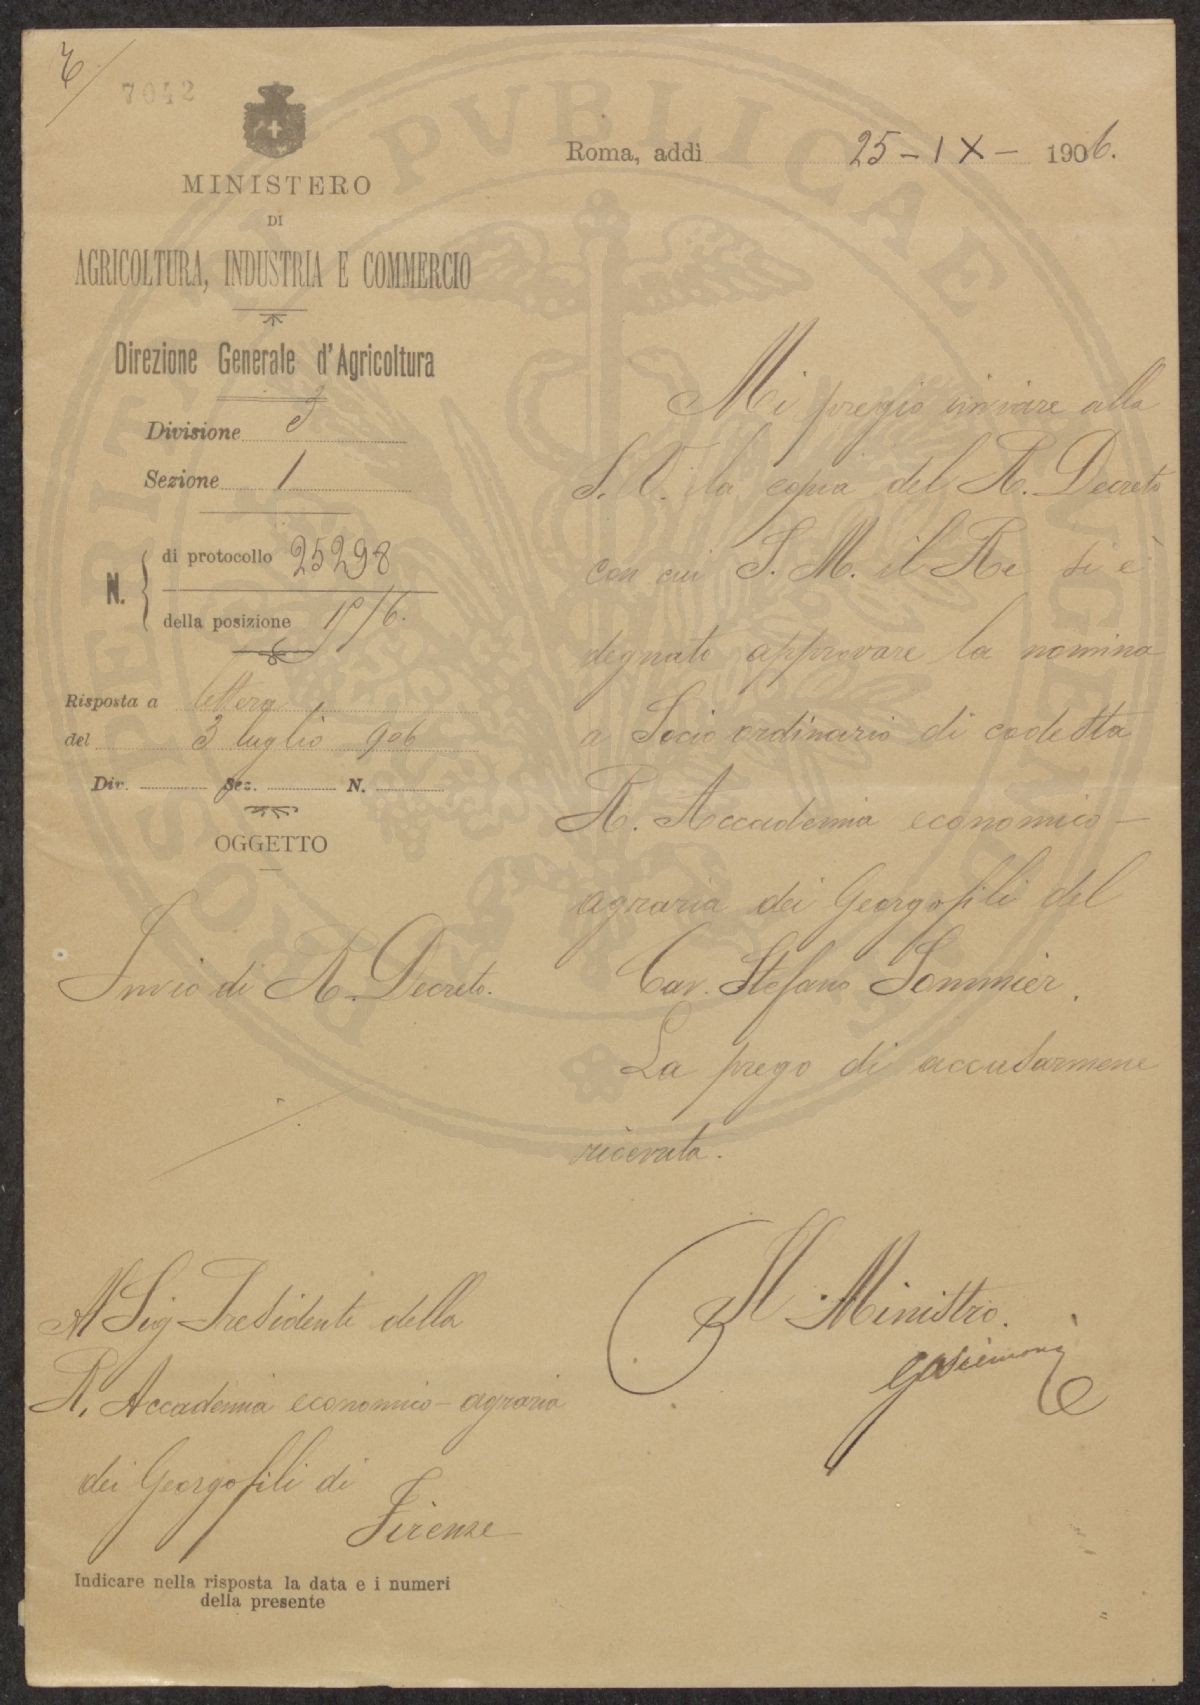 7042
Roma, addì 25-IX- 1906.
MINISTERO
DI
AGRICOLTURA, INDUSTRIA E COMMERCIO
Direzione Generale d'Agricoltura
Divisione 3
Sezione 1
N. di protocollo 25298
della posizione
Risposta a lettera
del 3 luglio 906
Div. Sez. N.
OGGETTO
Invio di R. Decreto.
Mi pregio inviare alla
S. V. la copia del R. Decreto
con cui S. M. il Re si è
degnato approvare la nomina
a Socio ordinario di codesta
R. Accademia economico-
agraria dei Georgofili del
Cav. Stefano Sommier.
La prego di accusarmene
ricevuta.
Il Ministro.
Al Sig Presidente della
R. Accademia economico-agraria
dei Georgofili di
Firenze
Indicare nella risposta la data e i numeri
della presente
PROSPERITATI PVBLICAE AVGENDAE